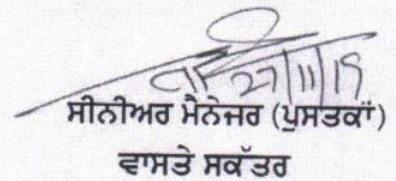 27/11/19
ਸੀਨੀਅਰ ਮੈਨੇਜਰ (ਪੁਸਤਕਾਂ)
ਵਾਸਤੇ ਸਕੱਤਰ